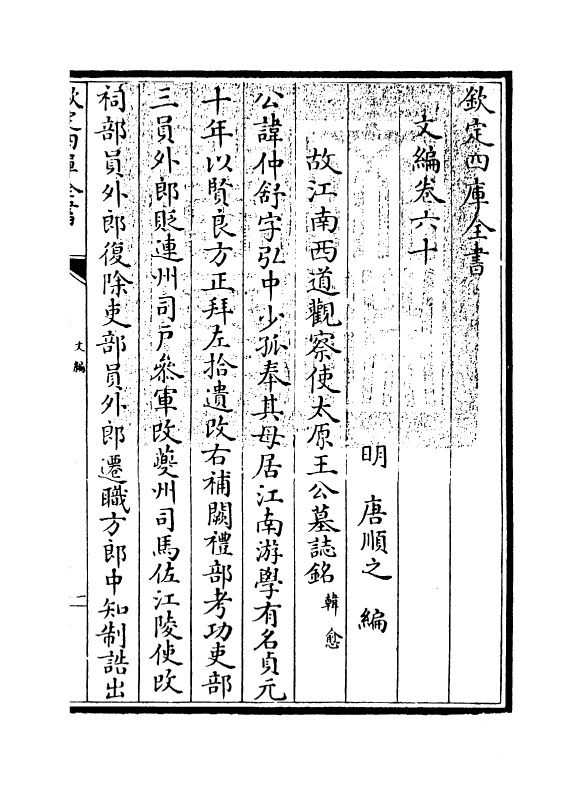 欽定四庫全書
文編卷六十
明 唐順之 編
故江南西道觀察使太原王公墓誌銘 韓愈
公諱仲舒字弘中少孤奉其母居江南游學有名貞元
十年以賢良方正拜左拾遺改右補闕禮部考功吏部
三員外郎貶連州司戶叅軍改夔州司馬佐江陵使改
祠部員外郎復除吏部員外郎遷職方郎中知制誥出
欽定四庫全書
文編